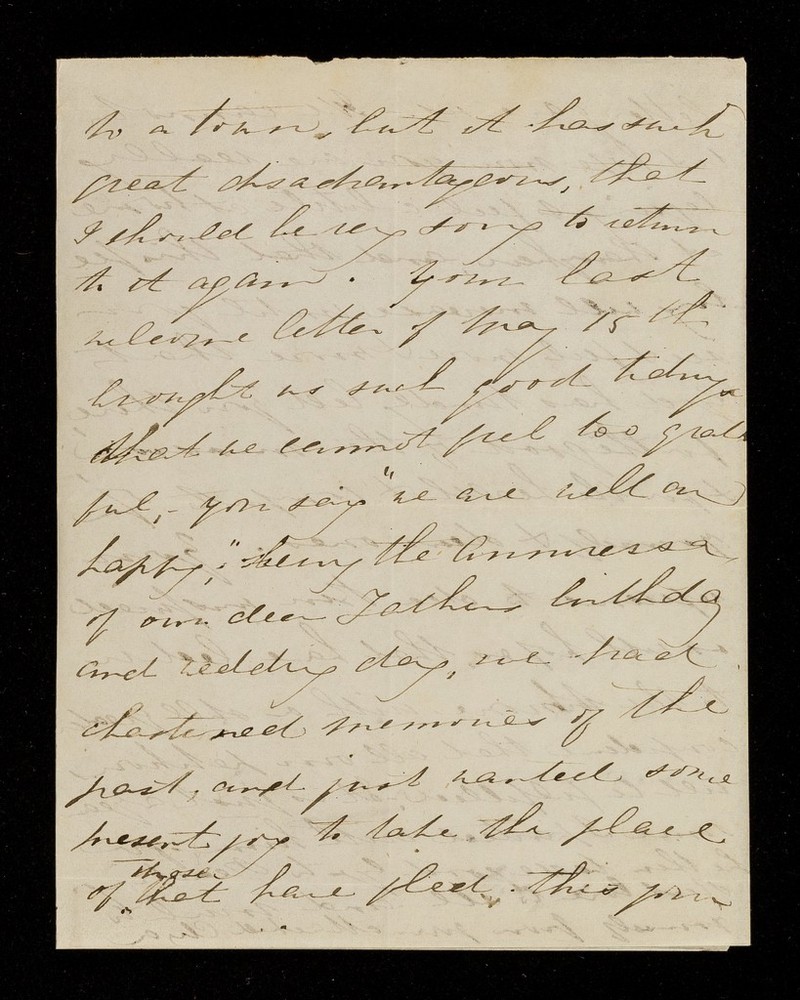 to a town, but it has such
great disadvantageous, that
I should be very sorry to return
to it again. Your last
welcome letter of May 15th
brought us such good tidings
that we cannot feel too grate
ful, - you say "we are well and
happy;" being the Anniversa
of our dear Fathers birthday
and wedding day, we had
chastened memories of the
past, and just wanted some
present joy to take the place
those
of that have fled. This you